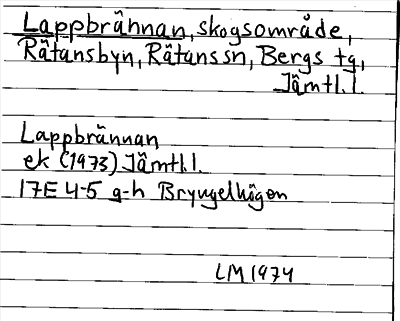 Lappbrännan, skogsområde,
Rätansbyn, Rätanssn, Bergs tg,
Jämtl.l.
Lappbrännan
ek (1973) Jämtl.l.
17E 4-5 g-h Bryngelhögen
LM 1974